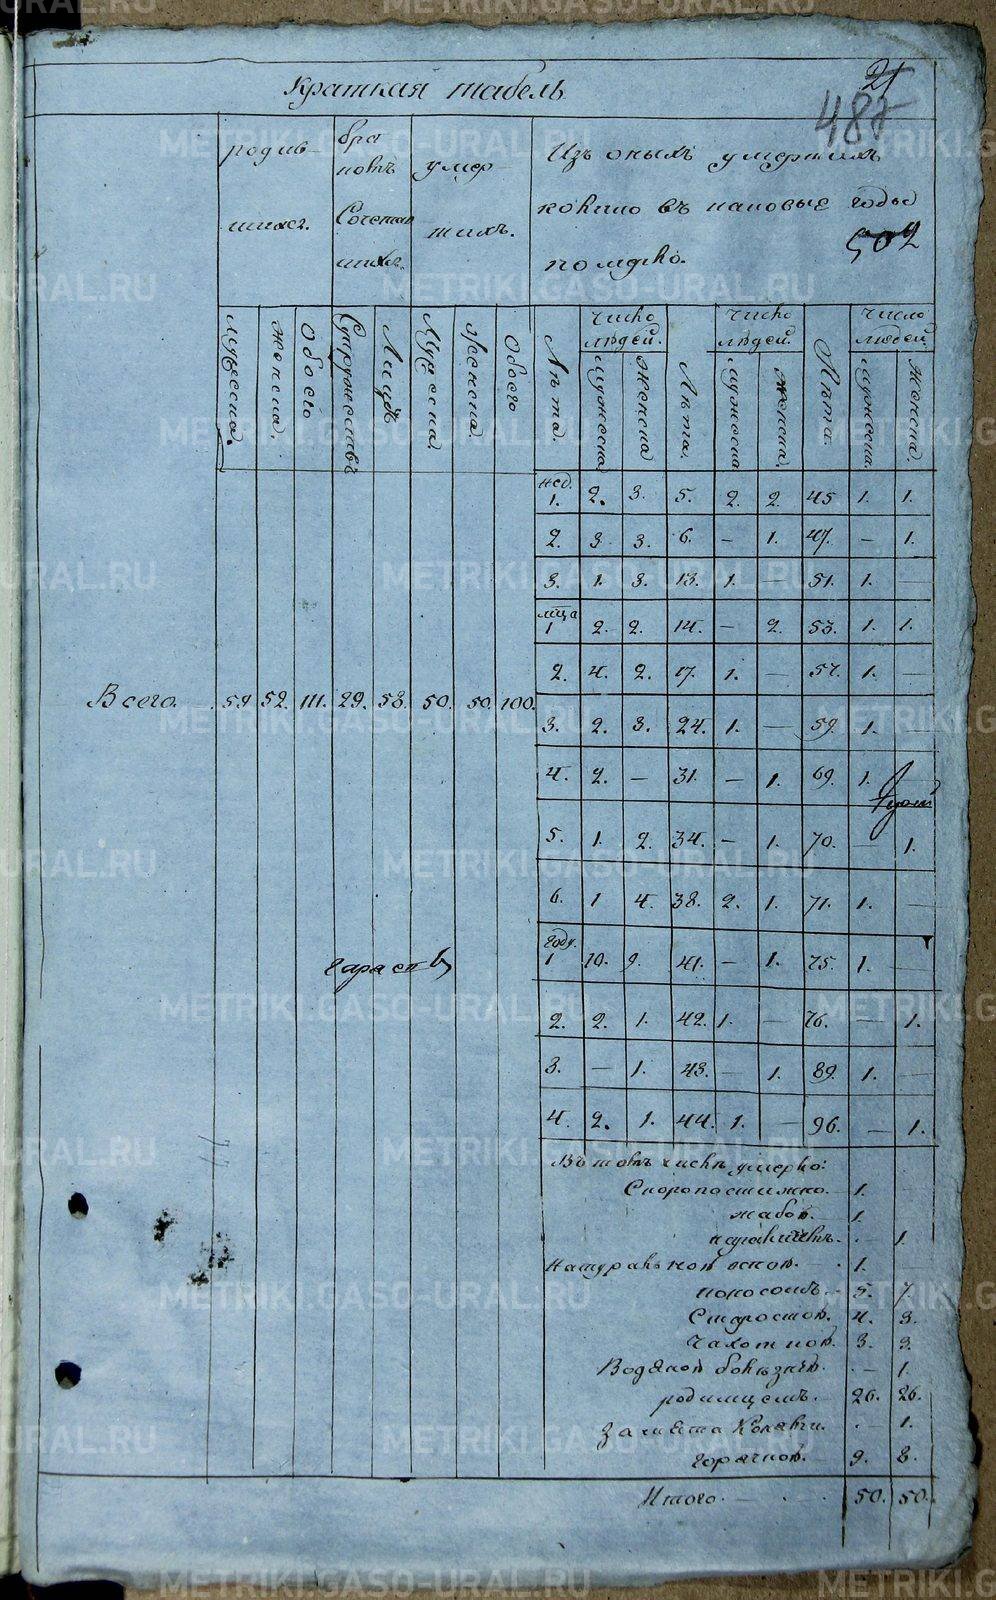 Краткая табель
21
487
родив
шихся.
бра
ковъ
Сочетав
шихся.
умер
шихъ.
Изъ оныхъ умершихъ
колико въ каковые годы
померло.
502
мужеска.
женска.
Обоего
Супружествъ
Лицъ
Мужеска.
женска.
Обоего
Лѣта.
число людей.
мужеска
женска
Лѣта.
число людей.
мужеска
женска.
Лѣта.
число людей.
мужеска.
женска.
нед. 1. 2. 3. 5. 2. 2. 45 1. 1.
2. 3. 3. 6. — 1. 47. — 1.
3. 1. 3. 13. 1. — 51. 1. —
мца 1 2. 2. 14. — 2. 53. 1. 1.
2. 4. 2. 17. 1. — 57. 1. —
Всего 59. 52. 111. 29. 58. 50. 50. 100.
3. 2. 3. 24. 1. — 59. 1. —
4. 2. — 31. — 1. 69. 1.
5. 1. 2. 34. — 1. 70. — 1.
6. 1 4. 38. 2. 1. 71. 1. —
году. 1 10. 9. 41. — 1. 75. 1. —
2. 2. 1. 42. 1. — 76. — 1.
3. — 1. 43. — 1. 89. 1. —
4. 2. 1. 44. 1. — 96. — 1.
Въ томъ числѣ умерло:
Скоропостижно. 1.
жабой. 1.
— 1.
натуральной оспой. 1.
поносомъ. 5. 7.
Старостой. 4. 3.
Чахоткой. 3. 3.
Водяной болѣзнію. — 1.
родимцемъ. 26. 26.
— 1.
горячкой. 9. 8.
Итого. 50. 50.
METRIKI.GASO-URAL.RU